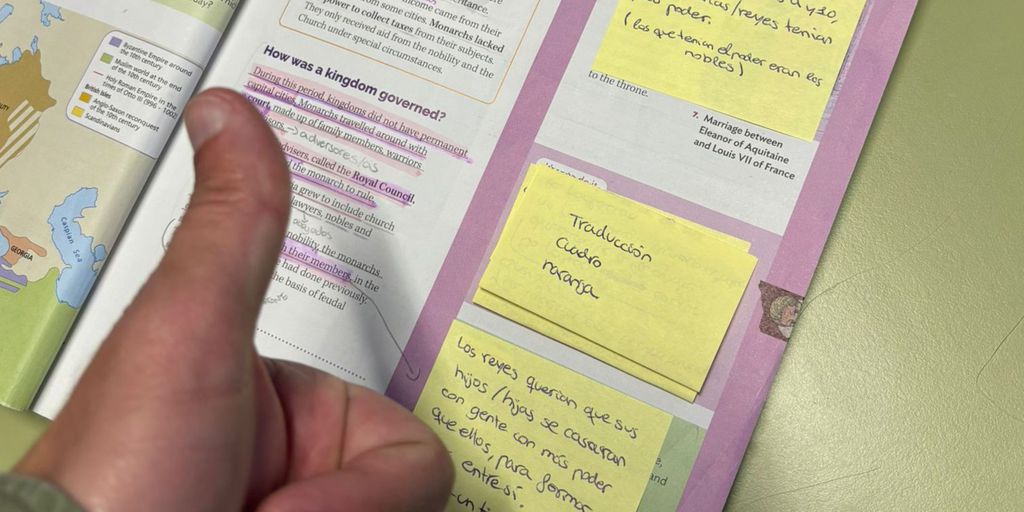 Byzantine Empire around
the 10th century
Muslim world at the end
of the 10th century
Holy Roman Empire in the
times of Otto III (996 - 1002)
British Isles
Anglo-Saxon reconquest
of the 10th century
Scandinavians
GEORGIA
Caspian Sea
income came from their
from some cities. Monarchs lacked
power to collect taxes from their subjects.
They only received aid from the nobility and the
Church under special circumstances.
How was a kingdom governed?
During this period, kingdoms did not have permanent
capital cities. Monarchs travelled around with
court, made up of family members, warriors
adversores/as
advisers, called the Royal Council,
the monarch to rule.
grew to include church
lawyers, nobles and
nobility, the monarchs
their members in the
had done previously.
the basis of feudal
/reyes tenian
poder.
(los que tenian el poder eran los
nobles)
to the throne.
7. Marriage between
Eleanor of Aquitaine
and Louis VII of France
Traducción
cuadro
naranja
Los reyes querian que sus
hijos/hijas se casaran
con gente con mas poder
que ellos, para formar
entresi.
and